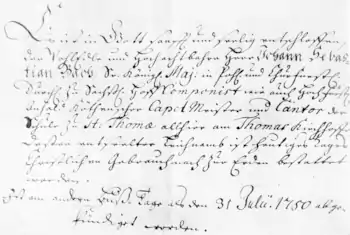 Es ist in Gott sanfft und seelig entschlaffen,
der Wohledle und Hochachtbahre Herr Johann Sebas-
tian Bach Sr. Königl. Maj. in Pohl. und Churfürstl.
Durchl. zu Sachß. Hoff Componist wie auch Hochfürstl.
Anhalt Köthenscher Capel Meister und Cantor der
Schule zu St. Thomæ allhier am Thomas Kirchhoffe
dessen entseelter Leichnam ist heutiges Tages
Christlichen Gebrauch nach zur Erden bestattet
worden.
Ist am andern Buß Tage als den 31 Julii. 1750 abge-
kündiget worden.